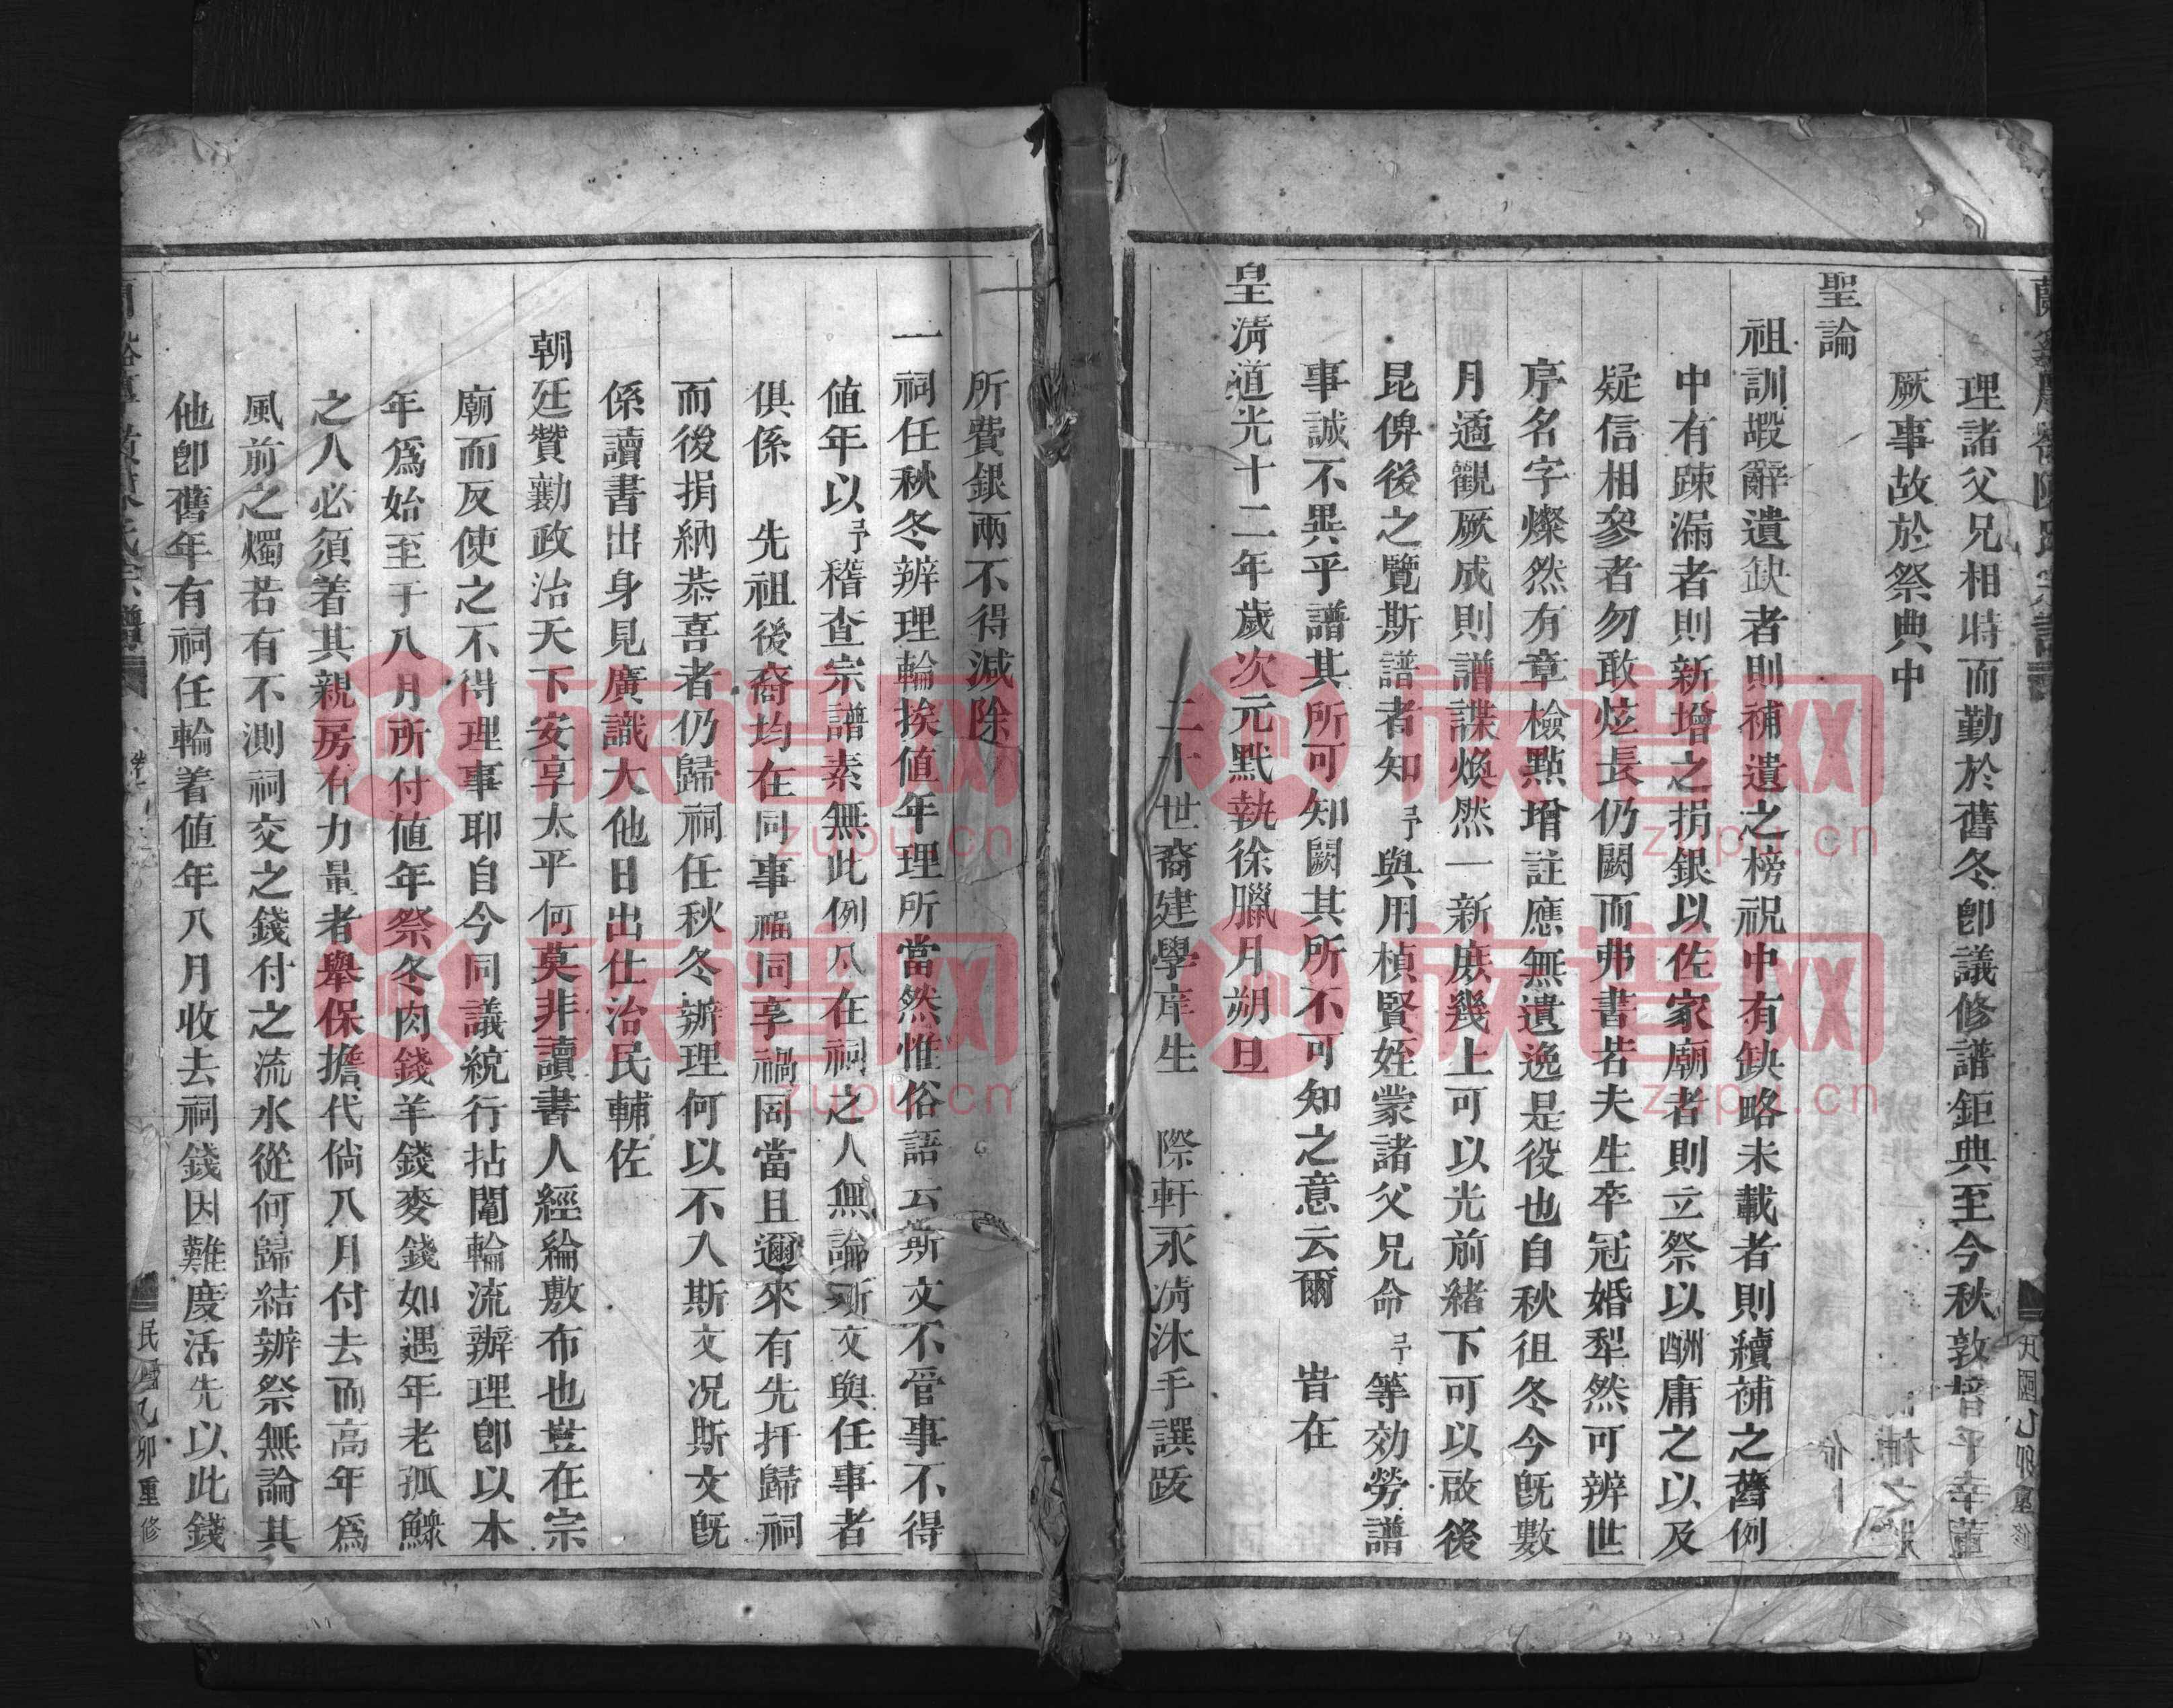 理諸父兄相時而勤於舊冬卽議修譜鉅典至今秋敦
厥事故於祭典中
聖論
祖訓嘏辭遺缺者則補遺之榜祝中有缺略未載者則續補之舊例
中有踈漏者則新增之捐銀以佐家廟者則立祭以酬庸之以及
疑信相參者勿敢炫長仍闕而弗書若夫生卒冠婚犁然可辨世
序名字燦然有章檢點增註應無遺逸是役也自秋徂冬今旣數
月遹觀厥成則譜諜煥然一新庶幾上可以光前緒下可以啟後
昆俾後之覽斯譜者知予與用楨賢姪蒙諸父兄命予等効勞譜
事誠不異乎譜其所可知闕其所不可知之意云爾 旹在
皇淸道光十二年歲次元黓執徐臘月朔旦
二十世裔建學庠生 際軒永淸沐手譔跋
所費銀兩不得減除
一祠任秋冬辦理輪挨值年理所當然惟俗語云斯文不管事不得
值年以予稽查宗譜素無此例凡在祠之人無論斯文與任事者
俱係 先祖後裔均在同事福同享禍同當且邇來有先扦歸祠
而後捐納恭喜者仍歸祠任秋冬辦理何以不入斯文况斯文旣
係讀書出身見廣識大他日出仕治民輔佐
朝廷贊勷政治天下安享太平何莫非讀書人經綸敷布也豈在宗
廟而反使之不得理事耶自今同議統行拈鬮輪流辦理卽以本
年爲始至于八月所付值年祭冬肉錢羊錢麥錢如遇年老孤鰥
之人必須着其親房有力量者舉保擔代倘八月付去而高年爲
風前之燭若有不測祠交之錢付之流水從何歸結辦祭無論其
他卽舊年有祠任輪着値年八月收去祠錢因難度活先以此錢
民國乙卯重修
族谱网
zupu.cn
族谱网
zupu.cn
族谱网
zupu.cn
族谱网
zupu.cn